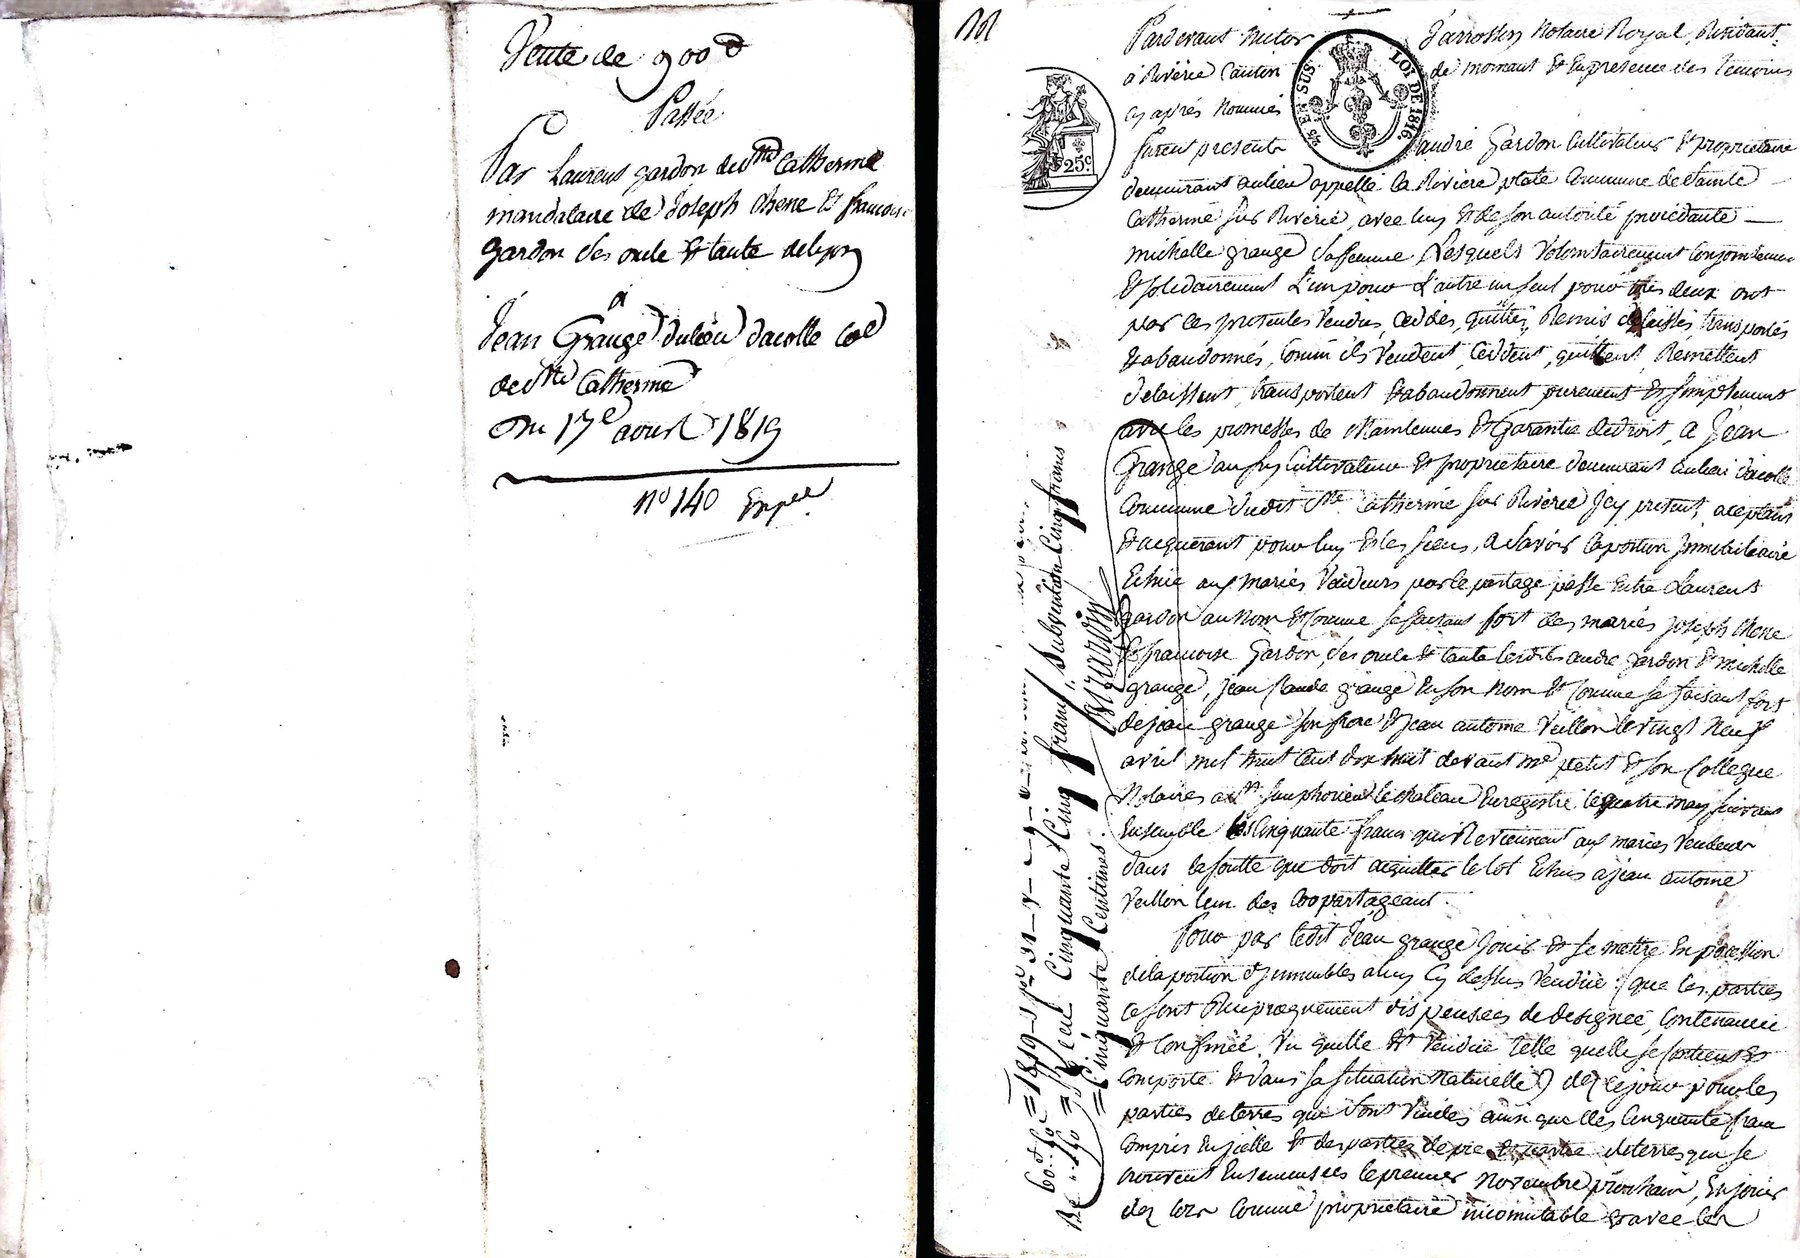 Vente de 900 d
Passée
Par Laurens gardon de Ste Catherine
mandataire de Joseph Chene & francoise
Gardon ses oncle & tante de lyon
a
Jean Grange du lieu dacolle Coe
de Ste Catherine
Du 17e aoust 1819
no 140 Exper
Pardevant Victor Jarrossay Notaire Royal, Residant
à Riverie Canton de mornant & En presence des Temoins
cy après Nommés
furent presents andré Gardon Cultivateur & proprietaire
demeurant au lieu appellé la Riviere plate Commune de Sainte
Catherine sur Riverie, avec luy & de son autorité procedante
michelle grange sa femme Lesquels Volontairement Conjointement
& solidairement L'un pour L'autre un seul pour les deux ont
par ces presentes Vendus, Ceddés, quittés, Remis delaissés transportés
& abandonnés, Comm ils Vendent, Ceddent, quittent, Remettent
delaissent, transportent & abandonnent purement & simplement
avec les promesses de Maintenues & Garantie de droit, a Jean
Grange aussy Cultivateur & proprietaire demeurant au lieu dacolle
Commune dudit Ste Catherine sur Riverie Icy present, aceptant
& acquerant pour luy & les siens, a Savoir la portion Immobiliaire
Echue aux mariés Vendeurs par le partage passé Entre Laurent
gardon au nom & Comme se faisant fort des mariés joseph Chene
& francoise Gardon, ses oncle & tante lesdits andré gardon & michelle
grange, jean Claude grange En son Nom & Comme se faisant fort
de jean grange son frere & jean antoine Veillon le vingt Neuf
avril mil huit Cent dix huit devant Me petit & son Collegue
Notaires a St Simphorien le Chateau Enregistré le quatre may suivant
Ensemble les Cinquante francs qui Reviennent aux mariés Vendeurs
dans la soutte que doit acquitter le lot Echus a jean antoine
Veillon l'un des Copartageant.
Pour par ledit Jean grange Jouir & se mettre En possession
de la portion d'Immeubles a luy Cy dessus Vendue (que les parties
ce sont Reciproquement dispensées de designée, Contenancée
& Confinée, Vu quelle Est Vendue Telle quelle se Contient &
Comporte & dans sa situation Naturelle) dez Ce jour pour les
parties de terres que sont Vuides ainsi que lles Cinquante francs
Compris En jcelle & des parties de pré & partie de terres qui se
trouvent Ensemensées le premier Novembre prochain, En jouir
dez lors Comme proprietaire incomutable & avec les
25 EN SUS
LOI DE 1816.
25c
Subvention Cinq francs
Cinquante Cinq francs
Cinquante Centimes